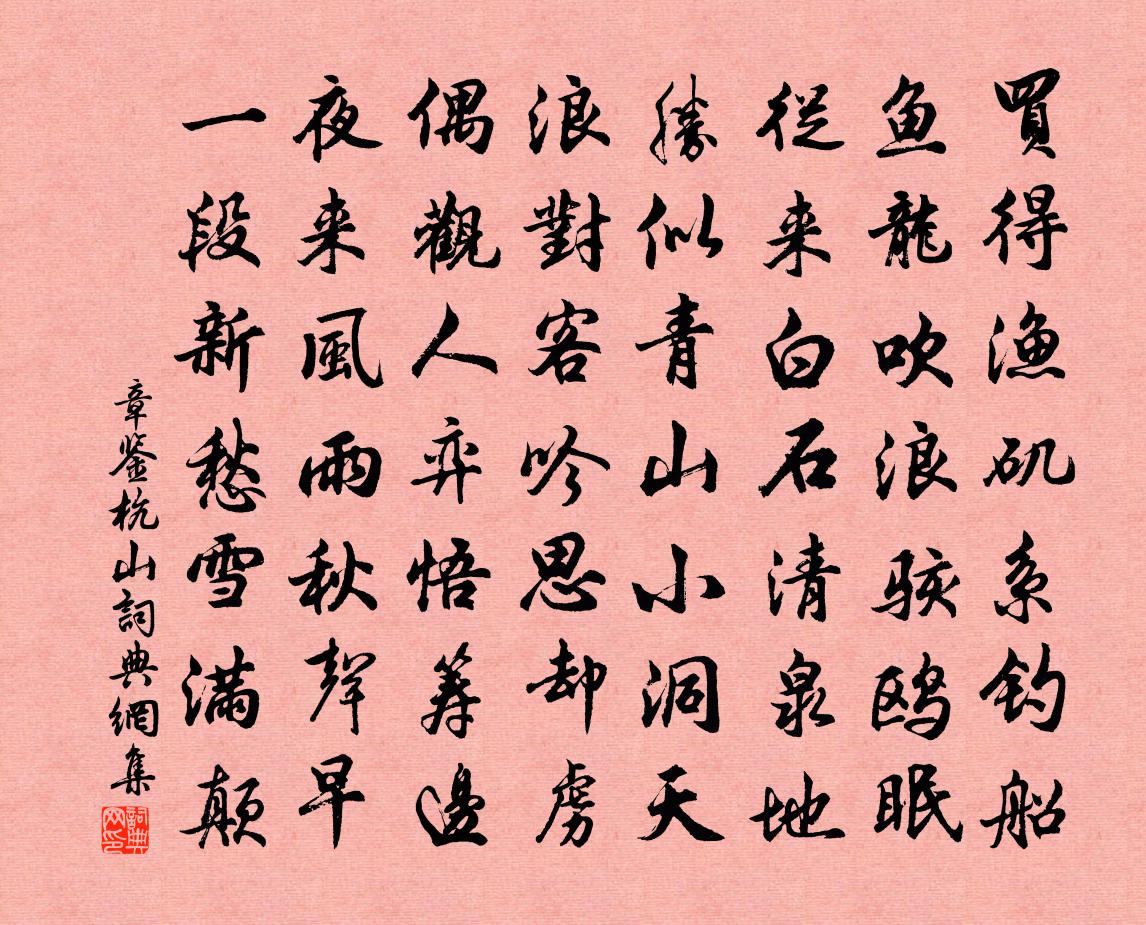 買得渔矶系钓船
鱼龍吹浪骇鸥眠
從来白石清泉地
勝似青山小洞天
浪對客吟思却虏
偶觀人弈悟筹邊
夜来風雨秋聲早
一段新愁雪满颠
章鉴杭山詞典網集
詞典網印